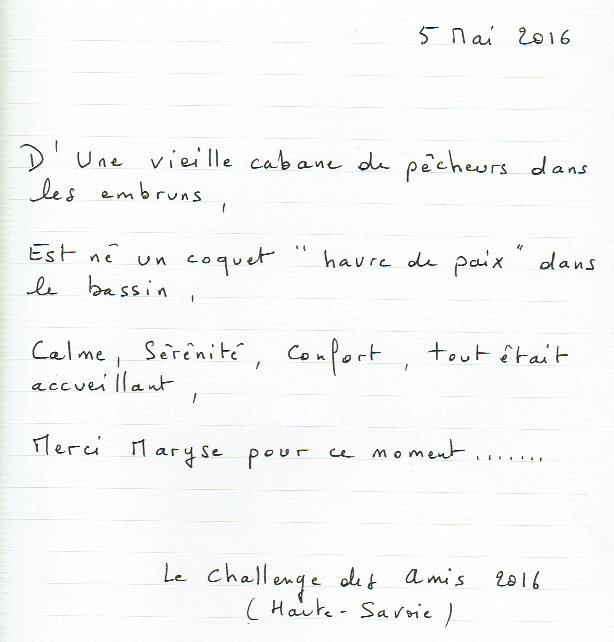 5 Mai 2016
D' Une vieille cabane de pêcheurs dans
les embruns,
Est né un coquet "havre de paix" dans
le bassin,
Calme, Sérénité, Confort, tout était
accueillant,
Merci Maryse pour ce moment.......
Le Challenge des Amis 2016
(Haute-Savoie)